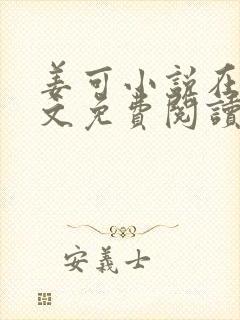 姜可小説在
文免費閱讀
安義士